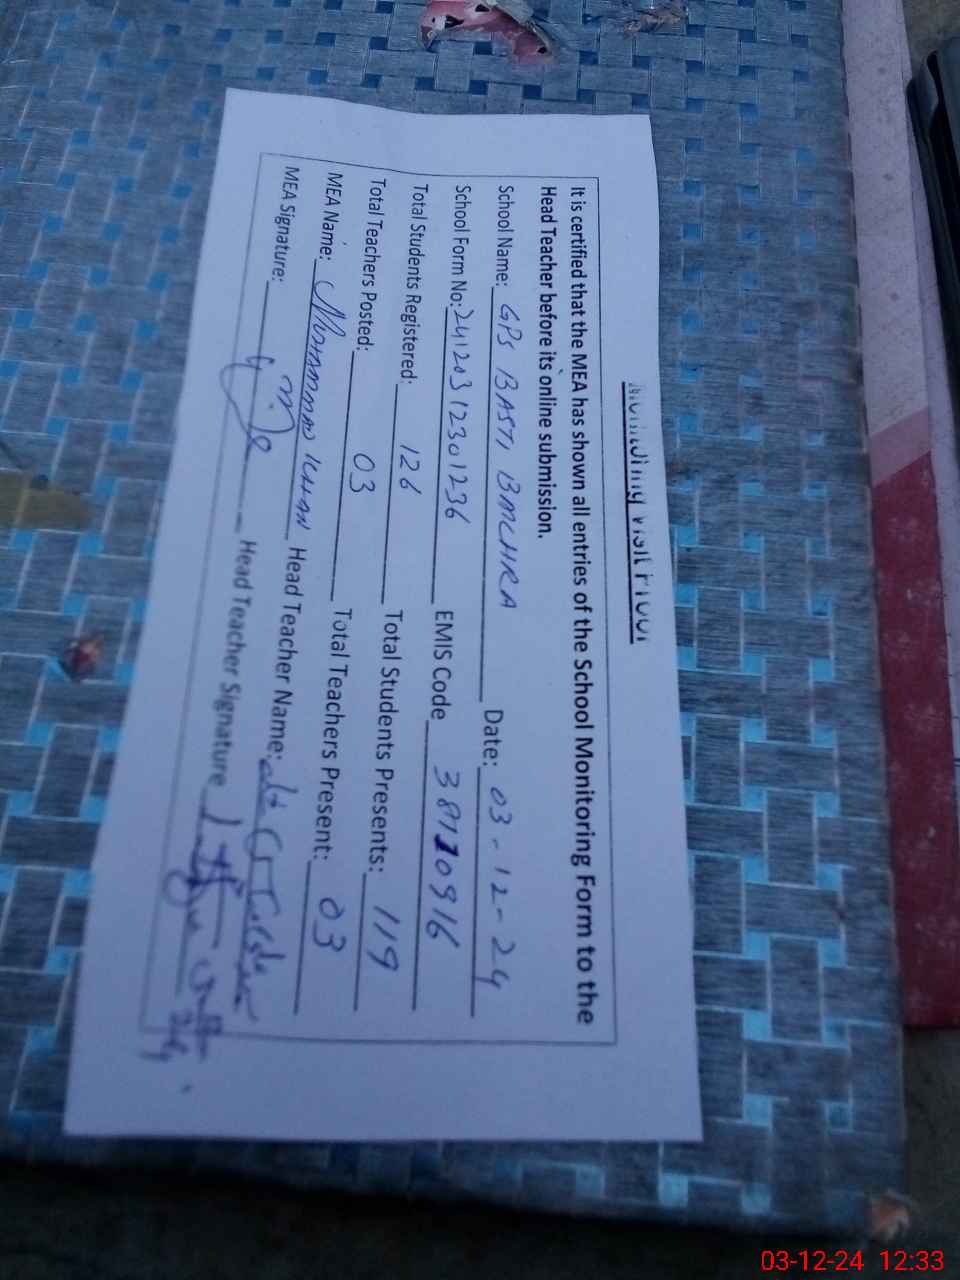 Monitoring Visit Proof
It is certified that the MEA has shown all entries of the School Monitoring Form to the
Head Teacher before its online submission.
School Name: GPS BASTI BMCHRA Date: 03-12-24
School Form No: 24120312301236 EMIS Code 38110916
Total Students Registered: 126 Total Students Presents: 119
Total Teachers Posted: 03 Total Teachers Present: 03
MEA Name: Muhammad Khan Head Teacher Name:
MEA Signature: Head Teacher Signature
03-12-24 12:33